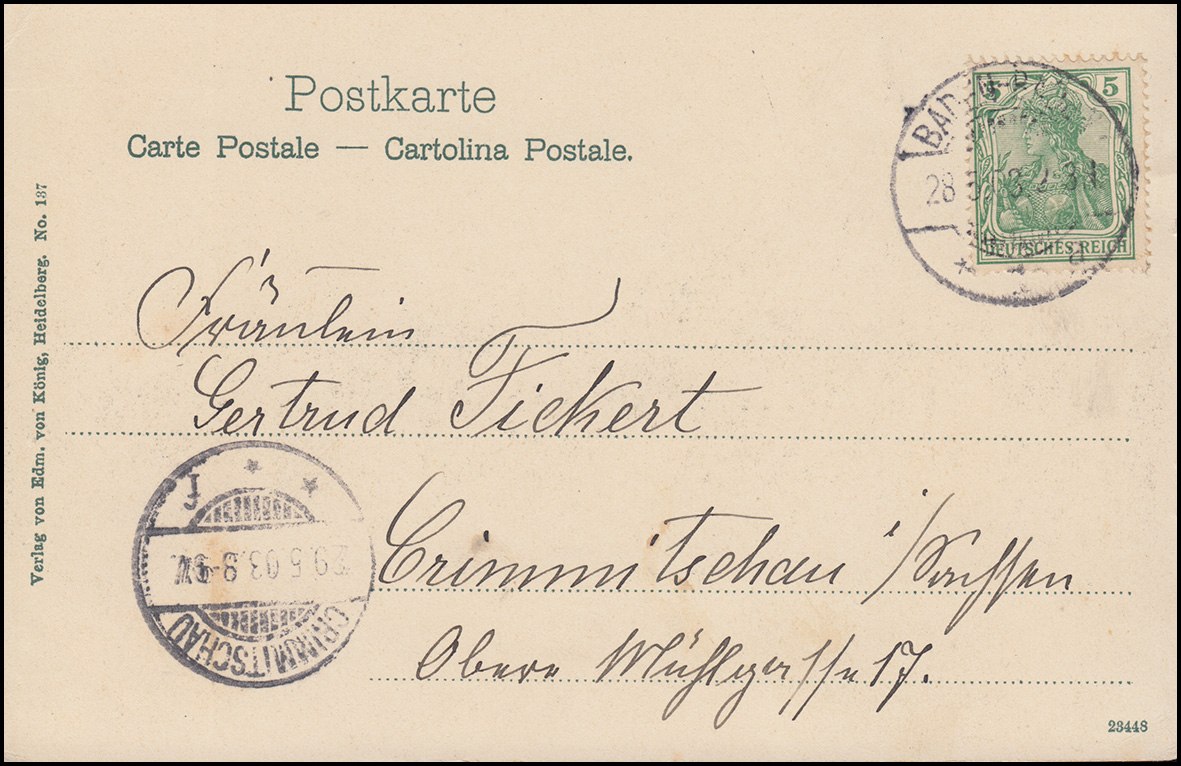 Postkarte
Carte Postale — Cartolina Postale.
5
DEUTSCHES REICH
BADEN-
28 5 03 2-3
Verlag von Edm. von König, Heidelberg. No. 137
Fräulein
Gertrud Fickert
Crimmitschau i/Sachsen
Obere Mühlgasse 17.
CRIMMITSCHAU
29.5.03.8-9V.
23448